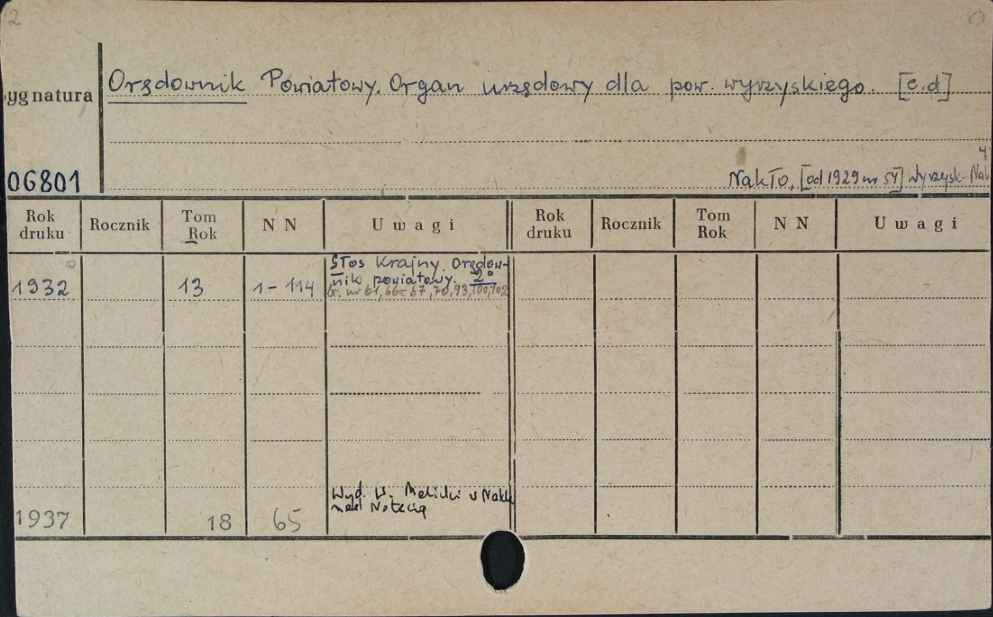 2
Orędownik Powiatowy. Organ urzędowy dla pow. wyrzyskiego. [c.d]
ygnatura
06801
4
Nakło, [od 1929 nr 54] Wyrzysk-Nak
Rok druku Rocznik Tom Rok N N Uwagi Rok druku Rocznik Tom Rok N N Uwagi
1932 13 1-114 Głos Krajny. Orędow-
nik powiatowy. 2°
br. nr 61, 66 i 67, 70, 93, 100, 102
Wyd. W. Melicki w Nakle
nad Notecią
1937 18 65